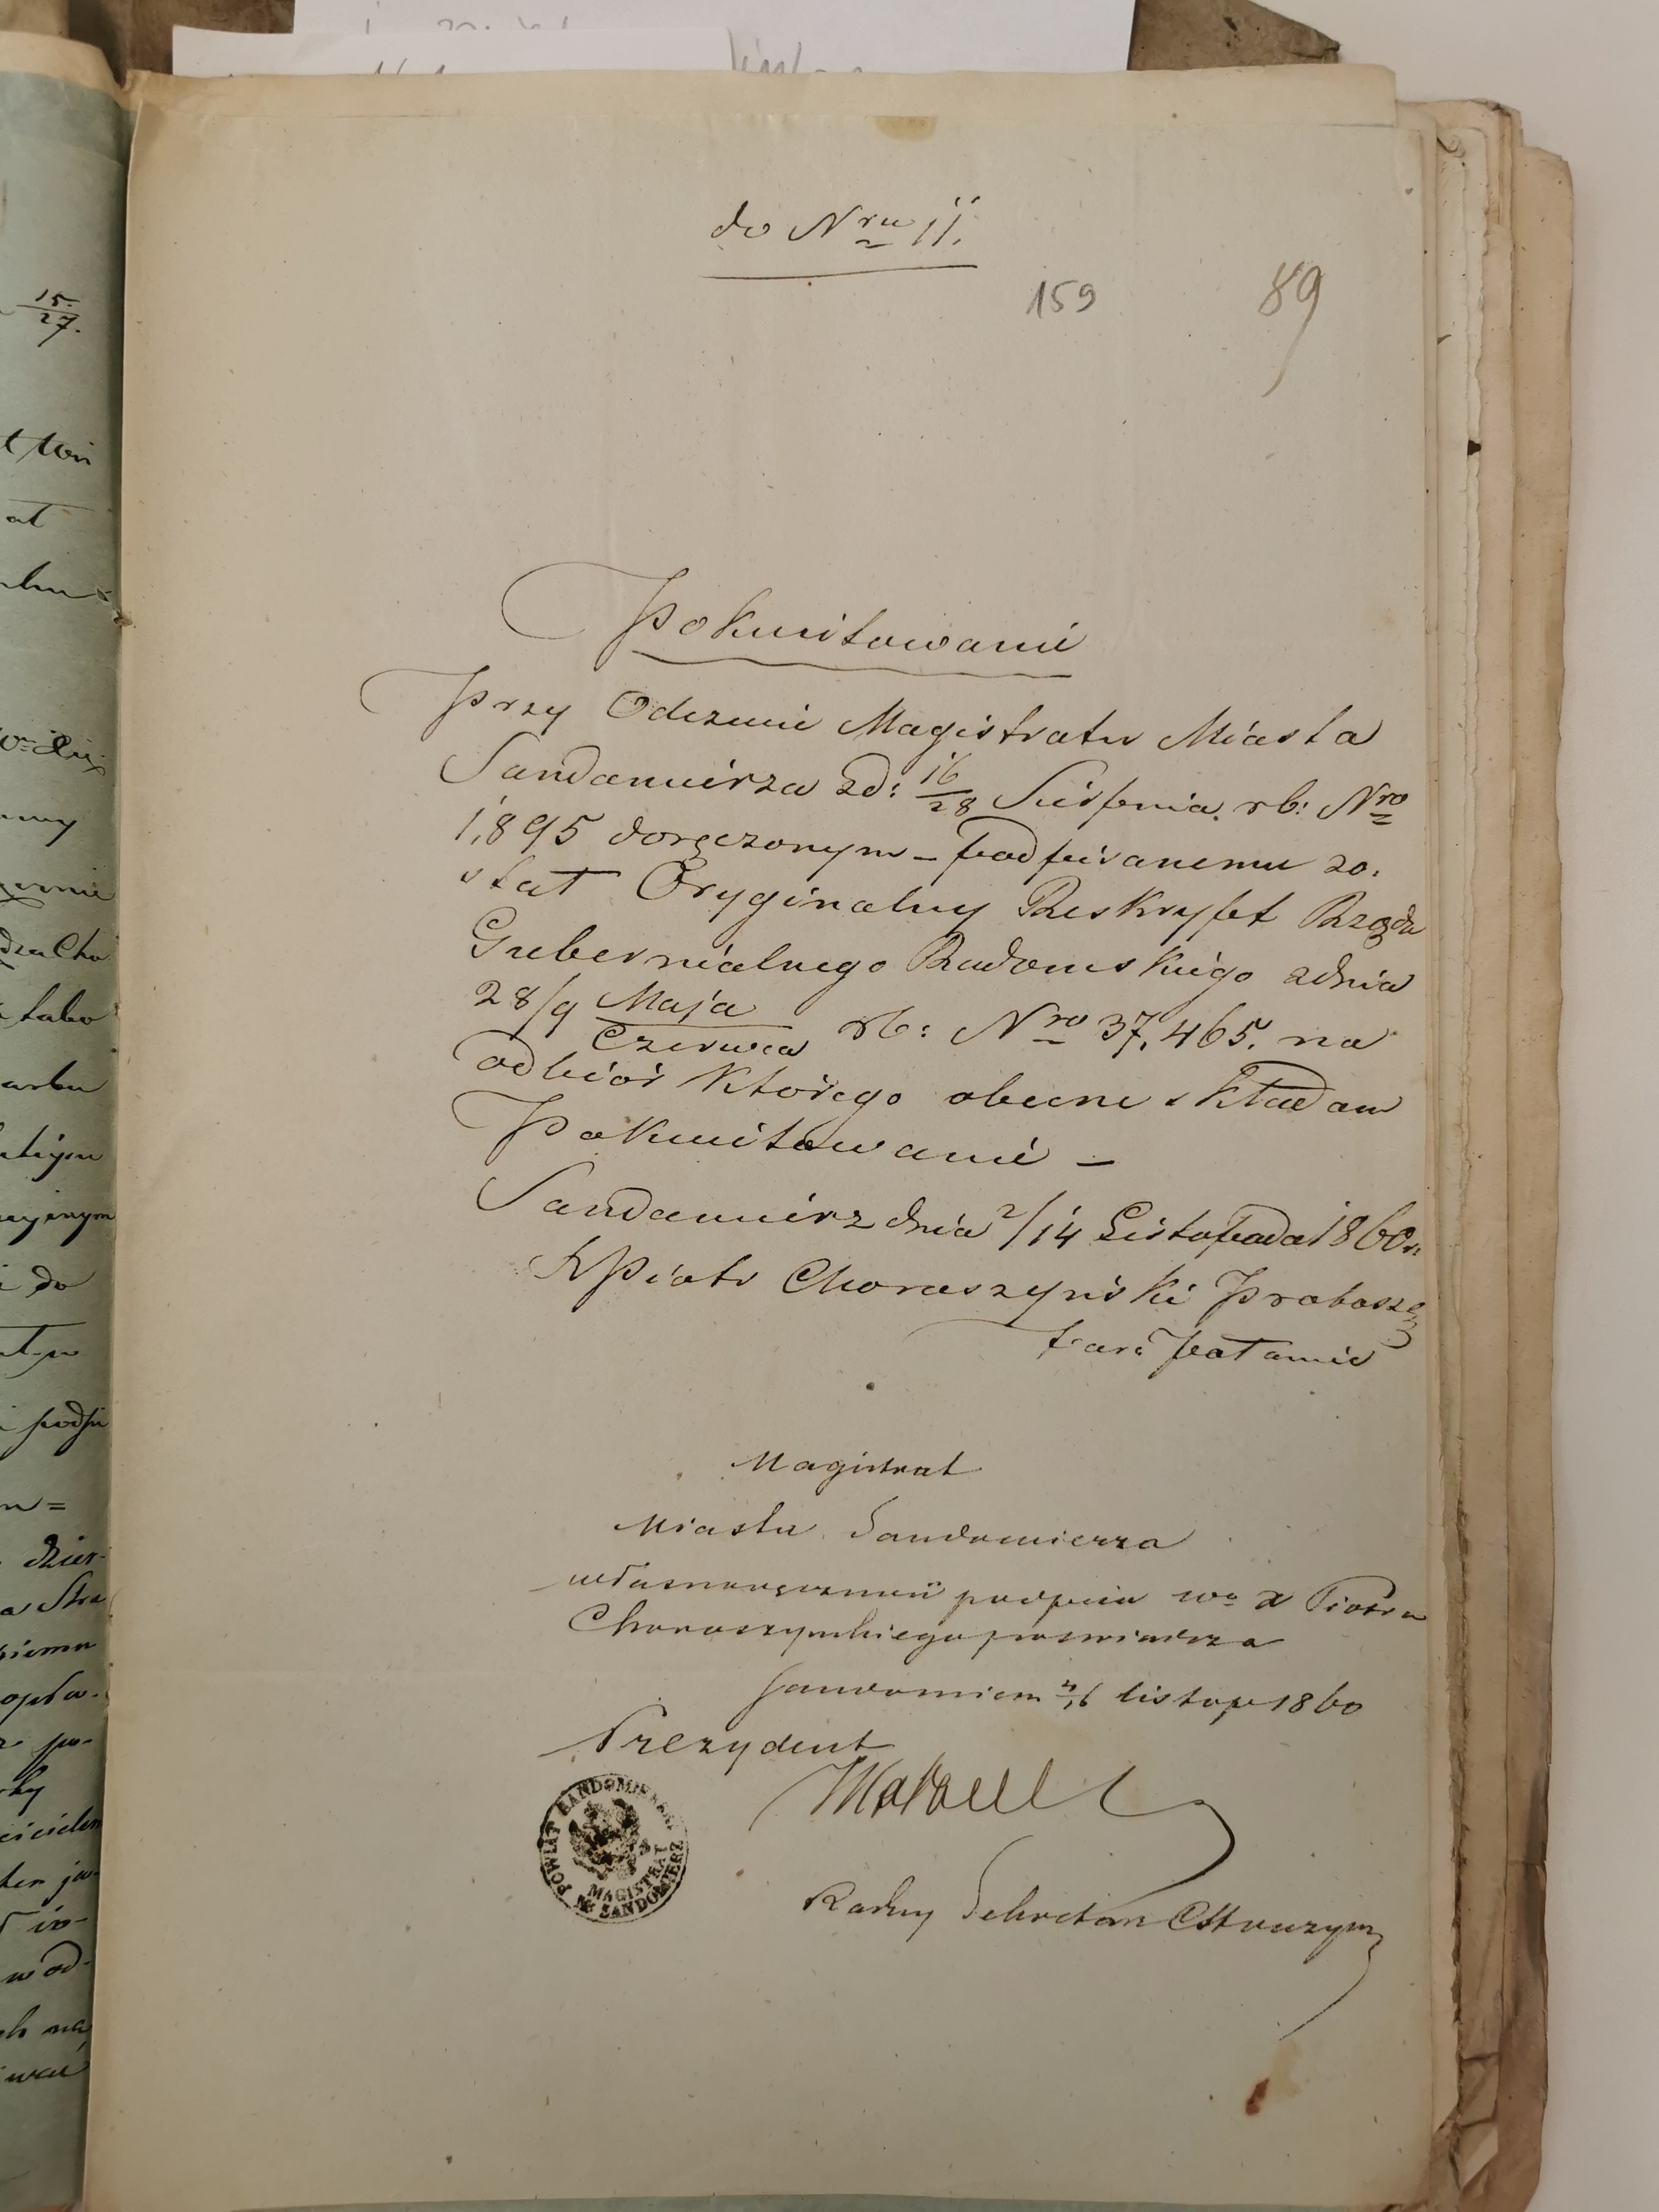 do Nru 11.
159
89
Pokwitowanie
Przy Odezwie Magistratu Miasta
Sandomierza zd: 16/28 Sierpnia rb: Nro
1,895 doręczonym – podpisanemu zo:
stał Oryginalny Reskrypt Rządu
Gubernialnego Radomskiego zdnia
28/9 Maja/Czerwca rb: Nro 37,465. na
odbiór którego obecne składam
Pokwitowanie –
Sandomierz dnia 2/14 Listopada 1860 r:
X Piotr Choroszyński Proboszcz
Magistrat
Miasta Sandomierza
własnoręczność podpisu Wo X Piotra
Choroszyńskiego poświadcza
Sandomierz 4/16 listop 1860
Prezydent
Radny Sekretarz
POWIAT SANDOMIERSKI
MAGISTRAT
M. SANDOMIERZ
15/27.
at
dza Cho
do
podpi
dzier-
a Stra
opła-
po-
w od-